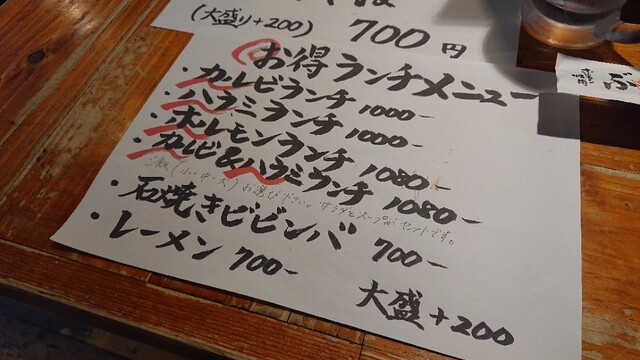 (大盛り+200) 700円
お得ランチメニュー
・カルビランチ 1000-
・ハラミランチ 1000-
・ホルモンランチ 1080-
・カルビ&ハラミランチ 1080-
ご飯(小・中・大)お選び下さい。サラダとスープがセットです。
・石焼きビビンバ 700-
・レーメン 700-
大盛+200